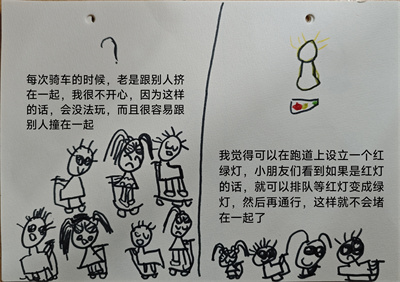 ?
每次骑车的时候，老是跟别人挤
在一起，我很不开心，因为这样
的话，会没法玩，而且很容易跟
别人撞在一起
我觉得可以在跑道上设立一个红
绿灯，小朋友们看到如果是红灯
的话，就可以排队等红灯变成绿
灯，然后再通行，这样就不会堵
在一起了